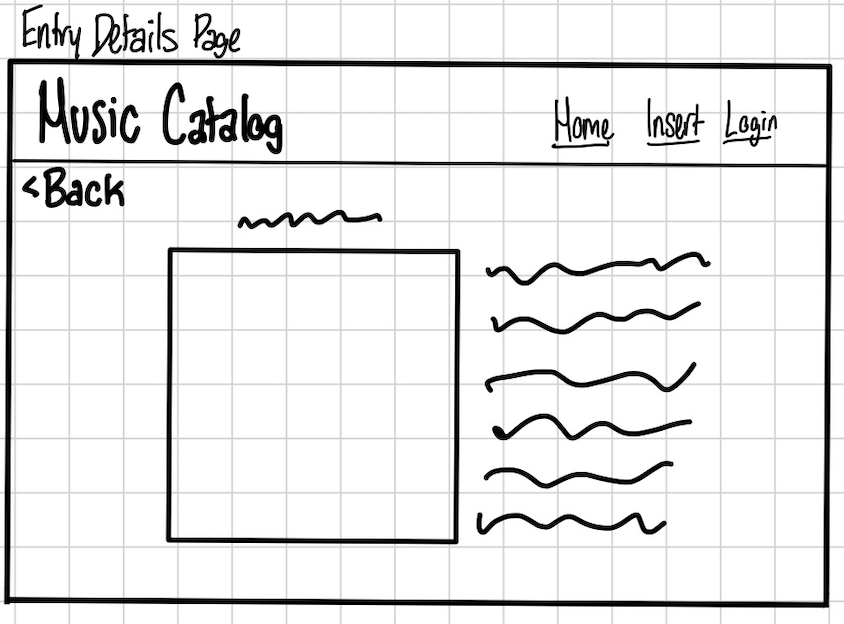 Entry Details Page
Music Catalog Home Insert Login
<Back